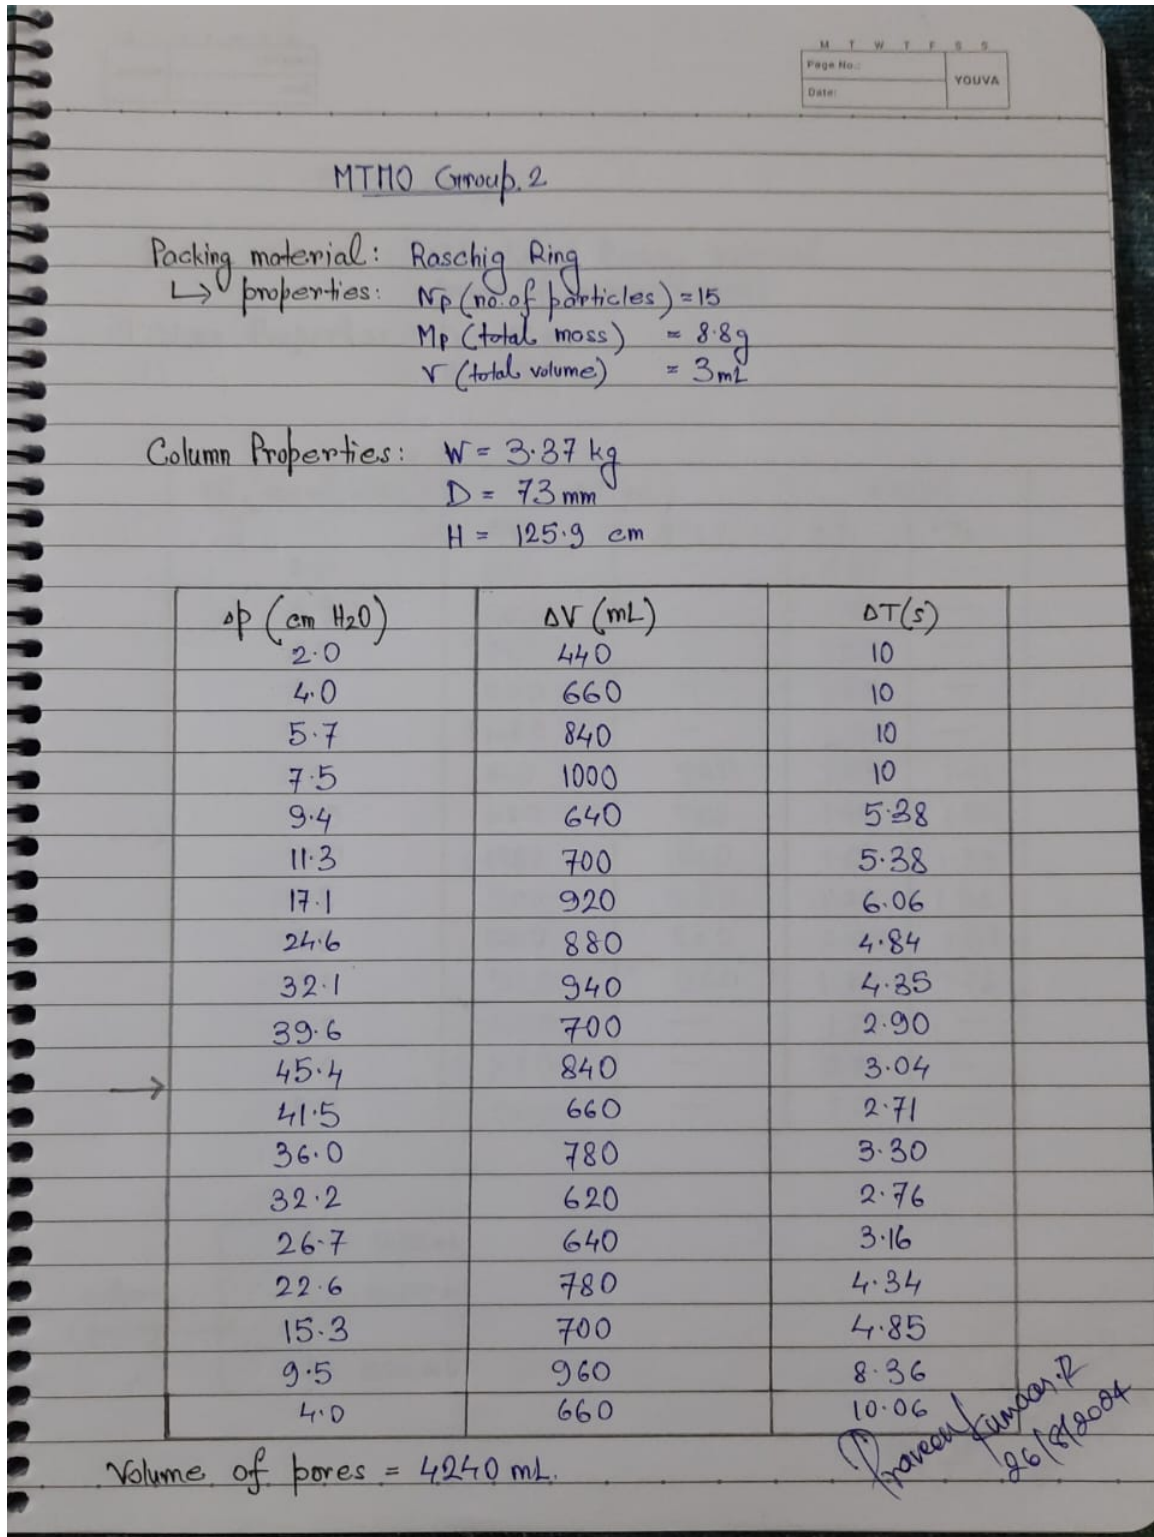 M T W T F S S
Page No.:
YOUVA
Date:
MTMO Group. 2
Packing material: Raschig Ring
↳ properties: Np (no. of particles) = 15
Mp (total mass) = 8.8g
V (total volume) = 3mL
Column Properties: W = 3.37 kg
D = 73 mm
H = 125.9 cm
Δp (cm H2O) ΔV (mL) ΔT(s)
2.0 440 10
4.0 660 10
5.7 840 10
7.5 1000 10
9.4 640 5.38
11.3 700 5.38
17.1 920 6.06
24.6 880 4.84
32.1 940 4.35
39.6 700 2.90
45.4 840 3.04
→
41.5 660 2.71
36.0 780 3.30
32.2 620 2.76
26.7 640 3.16
22.6 780 4.34
15.3 700 4.85
9.5 960 8.36
4.0 660 10.06
Praveen Kumaar.R
26/8/2024
Volume of pores = 4240 mL.